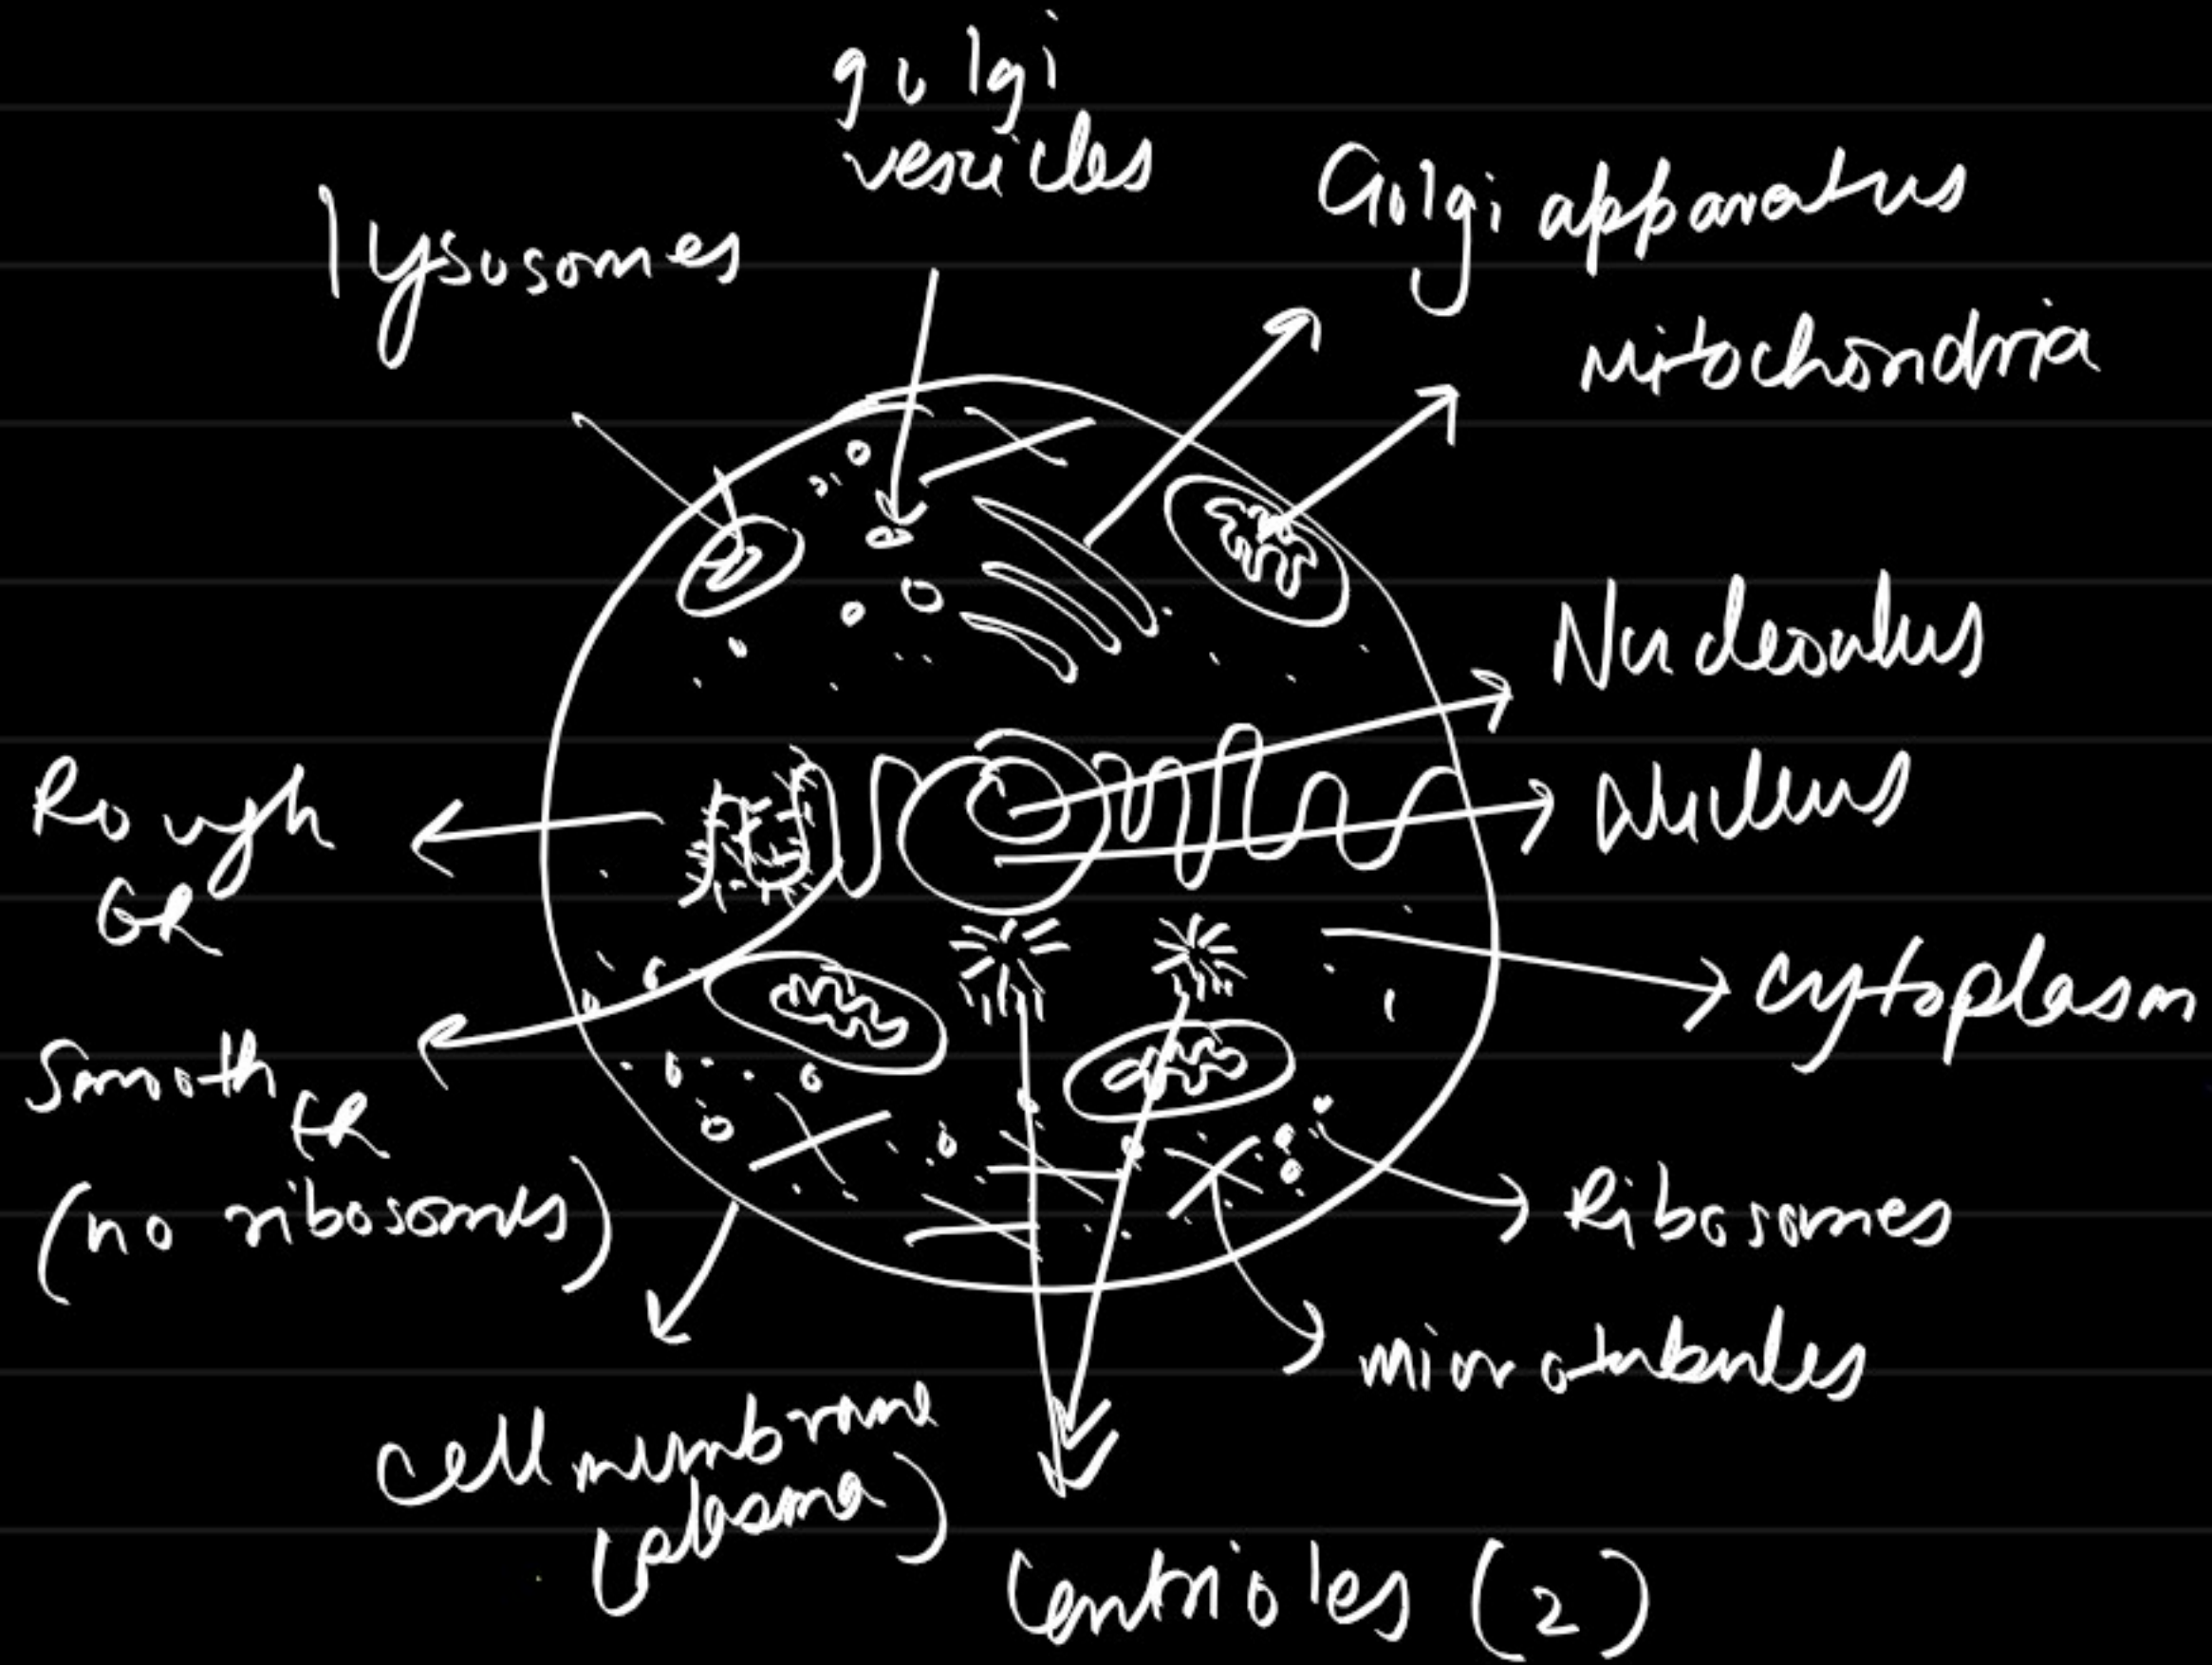 golgi
vesicles
lysosomes
Golgi apparatus
Mitochondria
Nucleoulus
Nucleus
Rough
ER
cytoplasm
Smooth
ER
(no ribosomes)
Ribosomes
microtubules
cell membrane
(plasma)
Centrioles (2)